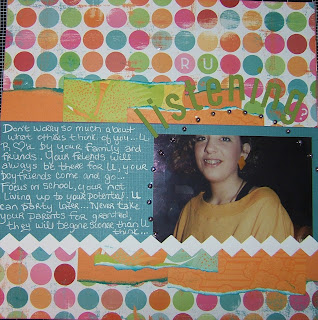 R U
listening?
Don't worry so much about
what others think of you... U
R ♡'d by your family and
friends. Your friends will
always be there for U, your
boyfriends come and go...
Focus on school, your not
living up to your potential. U
can party later... Never take
your parents for granted,
they will be gone sooner than U
think...